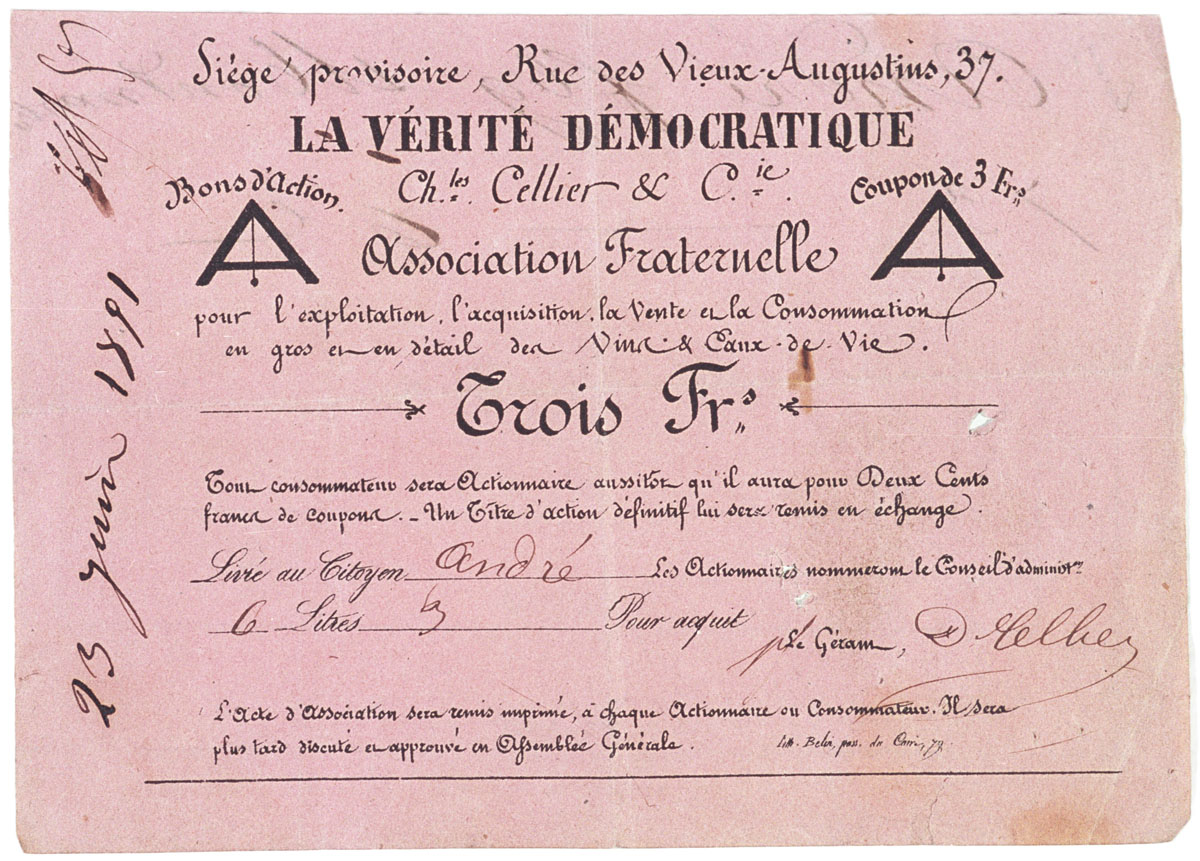 Siége provisoire, Rue des Vieux-Augustins, 37.
LA VÉRITÉ DÉMOCRATIQUE
Bons d'Action.
Ch.les Cellier & C.ie
Coupon de 3 Frs
Association Fraternelle
pour l'exploitation, l'acquisition, la Vente et la Consommation
en gros et en détail des Vins & Eaux-de-Vie.
Trois Frs
Tout consommateur sera Actionnaire aussitôt qu'il aura pour Deux Cents
francs de coupons. - Un Titre d'action définitif lui sera remis en échange.
Livré au Citoyen André Les Actionnaires nommeront le Conseil d'administ.on
6 Litres 3 Pour acquit
p Le Gérant,
L'Acte d'Association sera remis imprimé, à chaque Actionnaire ou Consommateur. Il sera
plus tard discuté et approuvé en Assemblée Générale.
Lith. Belin, pass. du Caire, 79.
23 juin 1891